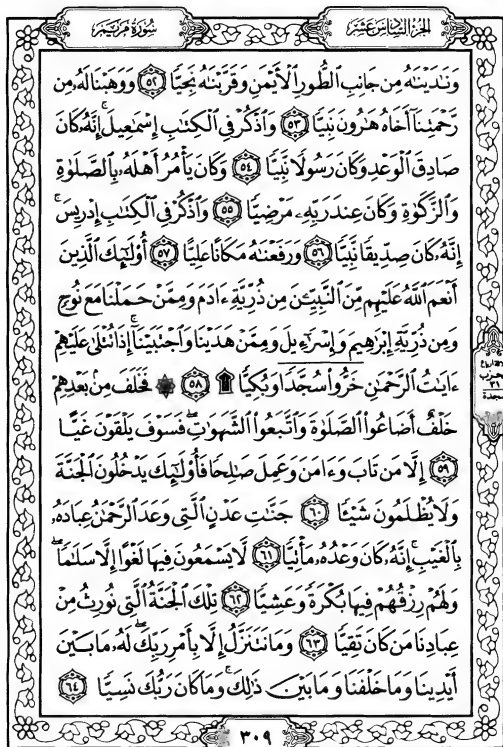 الجزء السادس عشر
سورة مريم
وَنَٰدَيْنَٰهُ مِن جَانِبِ ٱلطُّورِ ٱلْأَيْمَنِ وَقَرَّبْنَٰهُ نَجِيًّا ٥٢ وَوَهَبْنَا لَهُۥ مِن
رَّحْمَتِنَآ أَخَاهُ هَٰرُونَ نَبِيًّا ٥٣ وَٱذْكُرْ فِى ٱلْكِتَٰبِ إِسْمَٰعِيلَ ۚ إِنَّهُۥ كَانَ
صَادِقَ ٱلْوَعْدِ وَكَانَ رَسُولًا نَّبِيًّا ٥٤ وَكَانَ يَأْمُرُ أَهْلَهُۥ بِٱلصَّلَوٰةِ
وَٱلزَّكَوٰةِ وَكَانَ عِندَ رَبِّهِۦ مَرْضِيًّا ٥٥ وَٱذْكُرْ فِى ٱلْكِتَٰبِ إِدْرِيسَ ۚ
إِنَّهُۥ كَانَ صِدِّيقًا نَّبِيًّا ٥٦ وَرَفَعْنَٰهُ مَكَانًا عَلِيًّا ٥٧ أُو۟لَٰٓئِكَ ٱلَّذِينَ
أَنْعَمَ ٱللَّهُ عَلَيْهِم مِّنَ ٱلنَّبِيِّـۧنَ مِن ذُرِّيَّةِ ءَادَمَ وَمِمَّنْ حَمَلْنَا مَعَ نُوحٍ
وَمِن ذُرِّيَّةِ إِبْرَٰهِيمَ وَإِسْرَٰٓءِيلَ وَمِمَّنْ هَدَيْنَا وَٱجْتَبَيْنَآ ۚ إِذَا تُتْلَىٰ عَلَيْهِمْ
ءَايَٰتُ ٱلرَّحْمَٰنِ خَرُّوا۟ سُجَّدًا وَبُكِيًّا ۩ ٥٨ ۞ فَخَلَفَ مِنۢ بَعْدِهِمْ
خَلْفٌ أَضَاعُوا۟ ٱلصَّلَوٰةَ وَٱتَّبَعُوا۟ ٱلشَّهَوَٰتِ ۖ فَسَوْفَ يَلْقَوْنَ غَيًّا
٥٩ إِلَّا مَن تَابَ وَءَامَنَ وَعَمِلَ صَٰلِحًا فَأُو۟لَٰٓئِكَ يَدْخُلُونَ ٱلْجَنَّةَ
وَلَا يُظْلَمُونَ شَيْـًٔا ٦٠ جَنَّٰتِ عَدْنٍ ٱلَّتِى وَعَدَ ٱلرَّحْمَٰنُ عِبَادَهُۥ
بِٱلْغَيْبِ ۚ إِنَّهُۥ كَانَ وَعْدُهُۥ مَأْتِيًّا ٦١ لَّا يَسْمَعُونَ فِيهَا لَغْوًا إِلَّا سَلَٰمًا ۖ
وَلَهُمْ رِزْقُهُمْ فِيهَا بُكْرَةً وَعَشِيًّا ٦٢ تِلْكَ ٱلْجَنَّةُ ٱلَّتِى نُورِثُ مِنْ
عِبَادِنَا مَن كَانَ تَقِيًّا ٦٣ وَمَا نَتَنَزَّلُ إِلَّا بِأَمْرِ رَبِّكَ ۖ لَهُۥ مَا بَيْنَ
أَيْدِينَا وَمَا خَلْفَنَا وَمَا بَيْنَ ذَٰلِكَ ۚ وَمَا كَانَ رَبُّكَ نَسِيًّا ٦٤
سجدة
٣٠٩